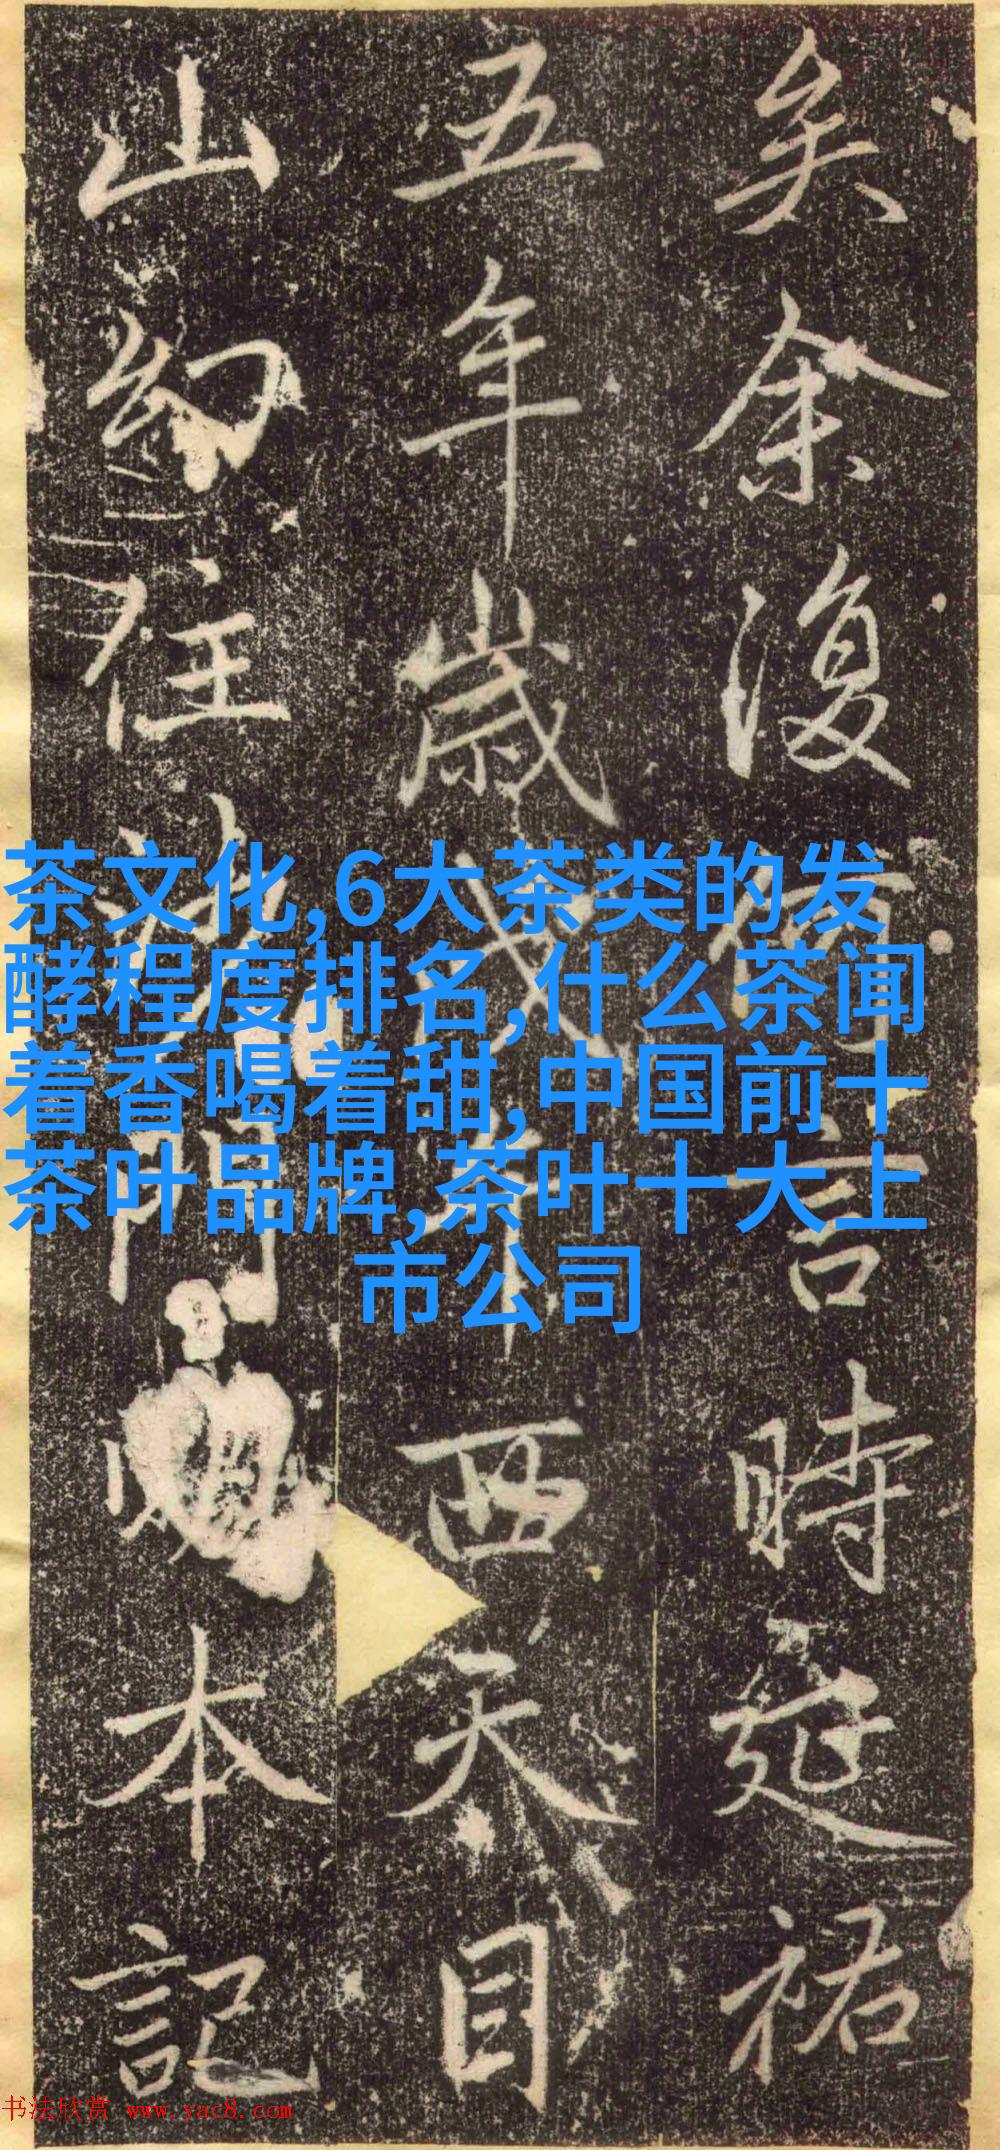 矣余復何言時延祐
五年歲戊午西天目
山幻住沙門明本記
茶文化,6大茶类的发
酵程度排名,什么茶闻
着香喝着甜,中国前十
茶叶品牌,茶叶十大上
市公司
书法欣赏 www.yac8.com